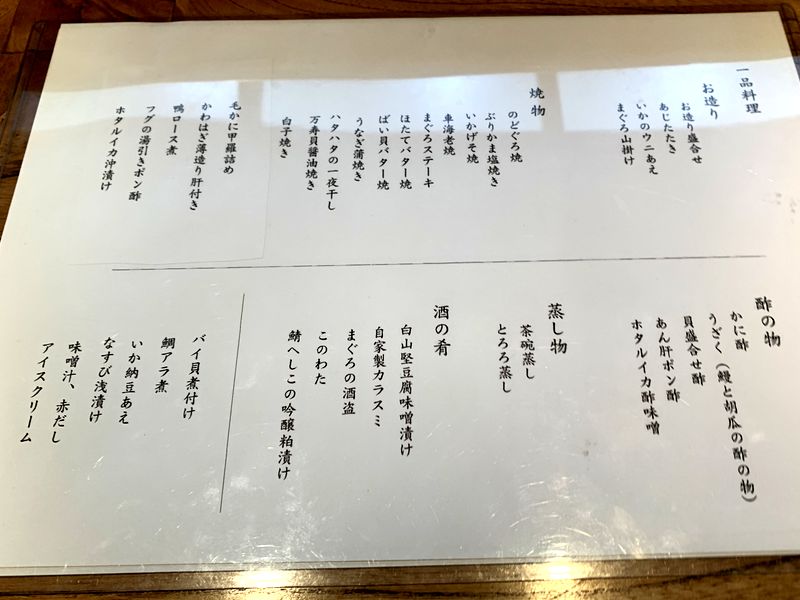 一品料理
お造り
お造り盛合せ
あじたたき
いかのウニあえ
まぐろ山掛け
焼物
のどぐろ焼
ぶりかま塩焼き
いかげそ焼
車海老焼
まぐろステーキ
ほたてバター焼
ばい貝バター焼
うなぎ蒲焼き
ハタハタの一夜干し
万寿貝醤油焼き
白子焼き
毛かに甲羅詰め
かわはぎ薄造り肝付き
鴨ロース煮
フグの湯引きポン酢
ホタルイカ沖漬け
酢の物
かに酢
うざく(鰻と胡瓜の酢の物)
貝盛合せ酢
あん肝ポン酢
ホタルイカ酢味噌
蒸し物
茶碗蒸し
とろろ蒸し
酒の肴
白山堅豆腐味噌漬け
自家製カラスミ
まぐろの酒盗
このわた
鯖へしこの吟醸粕漬け
バイ貝煮付け
鯛アラ煮
いか納豆あえ
なすび浅漬け
味噌汁、赤だし
アイスクリーム